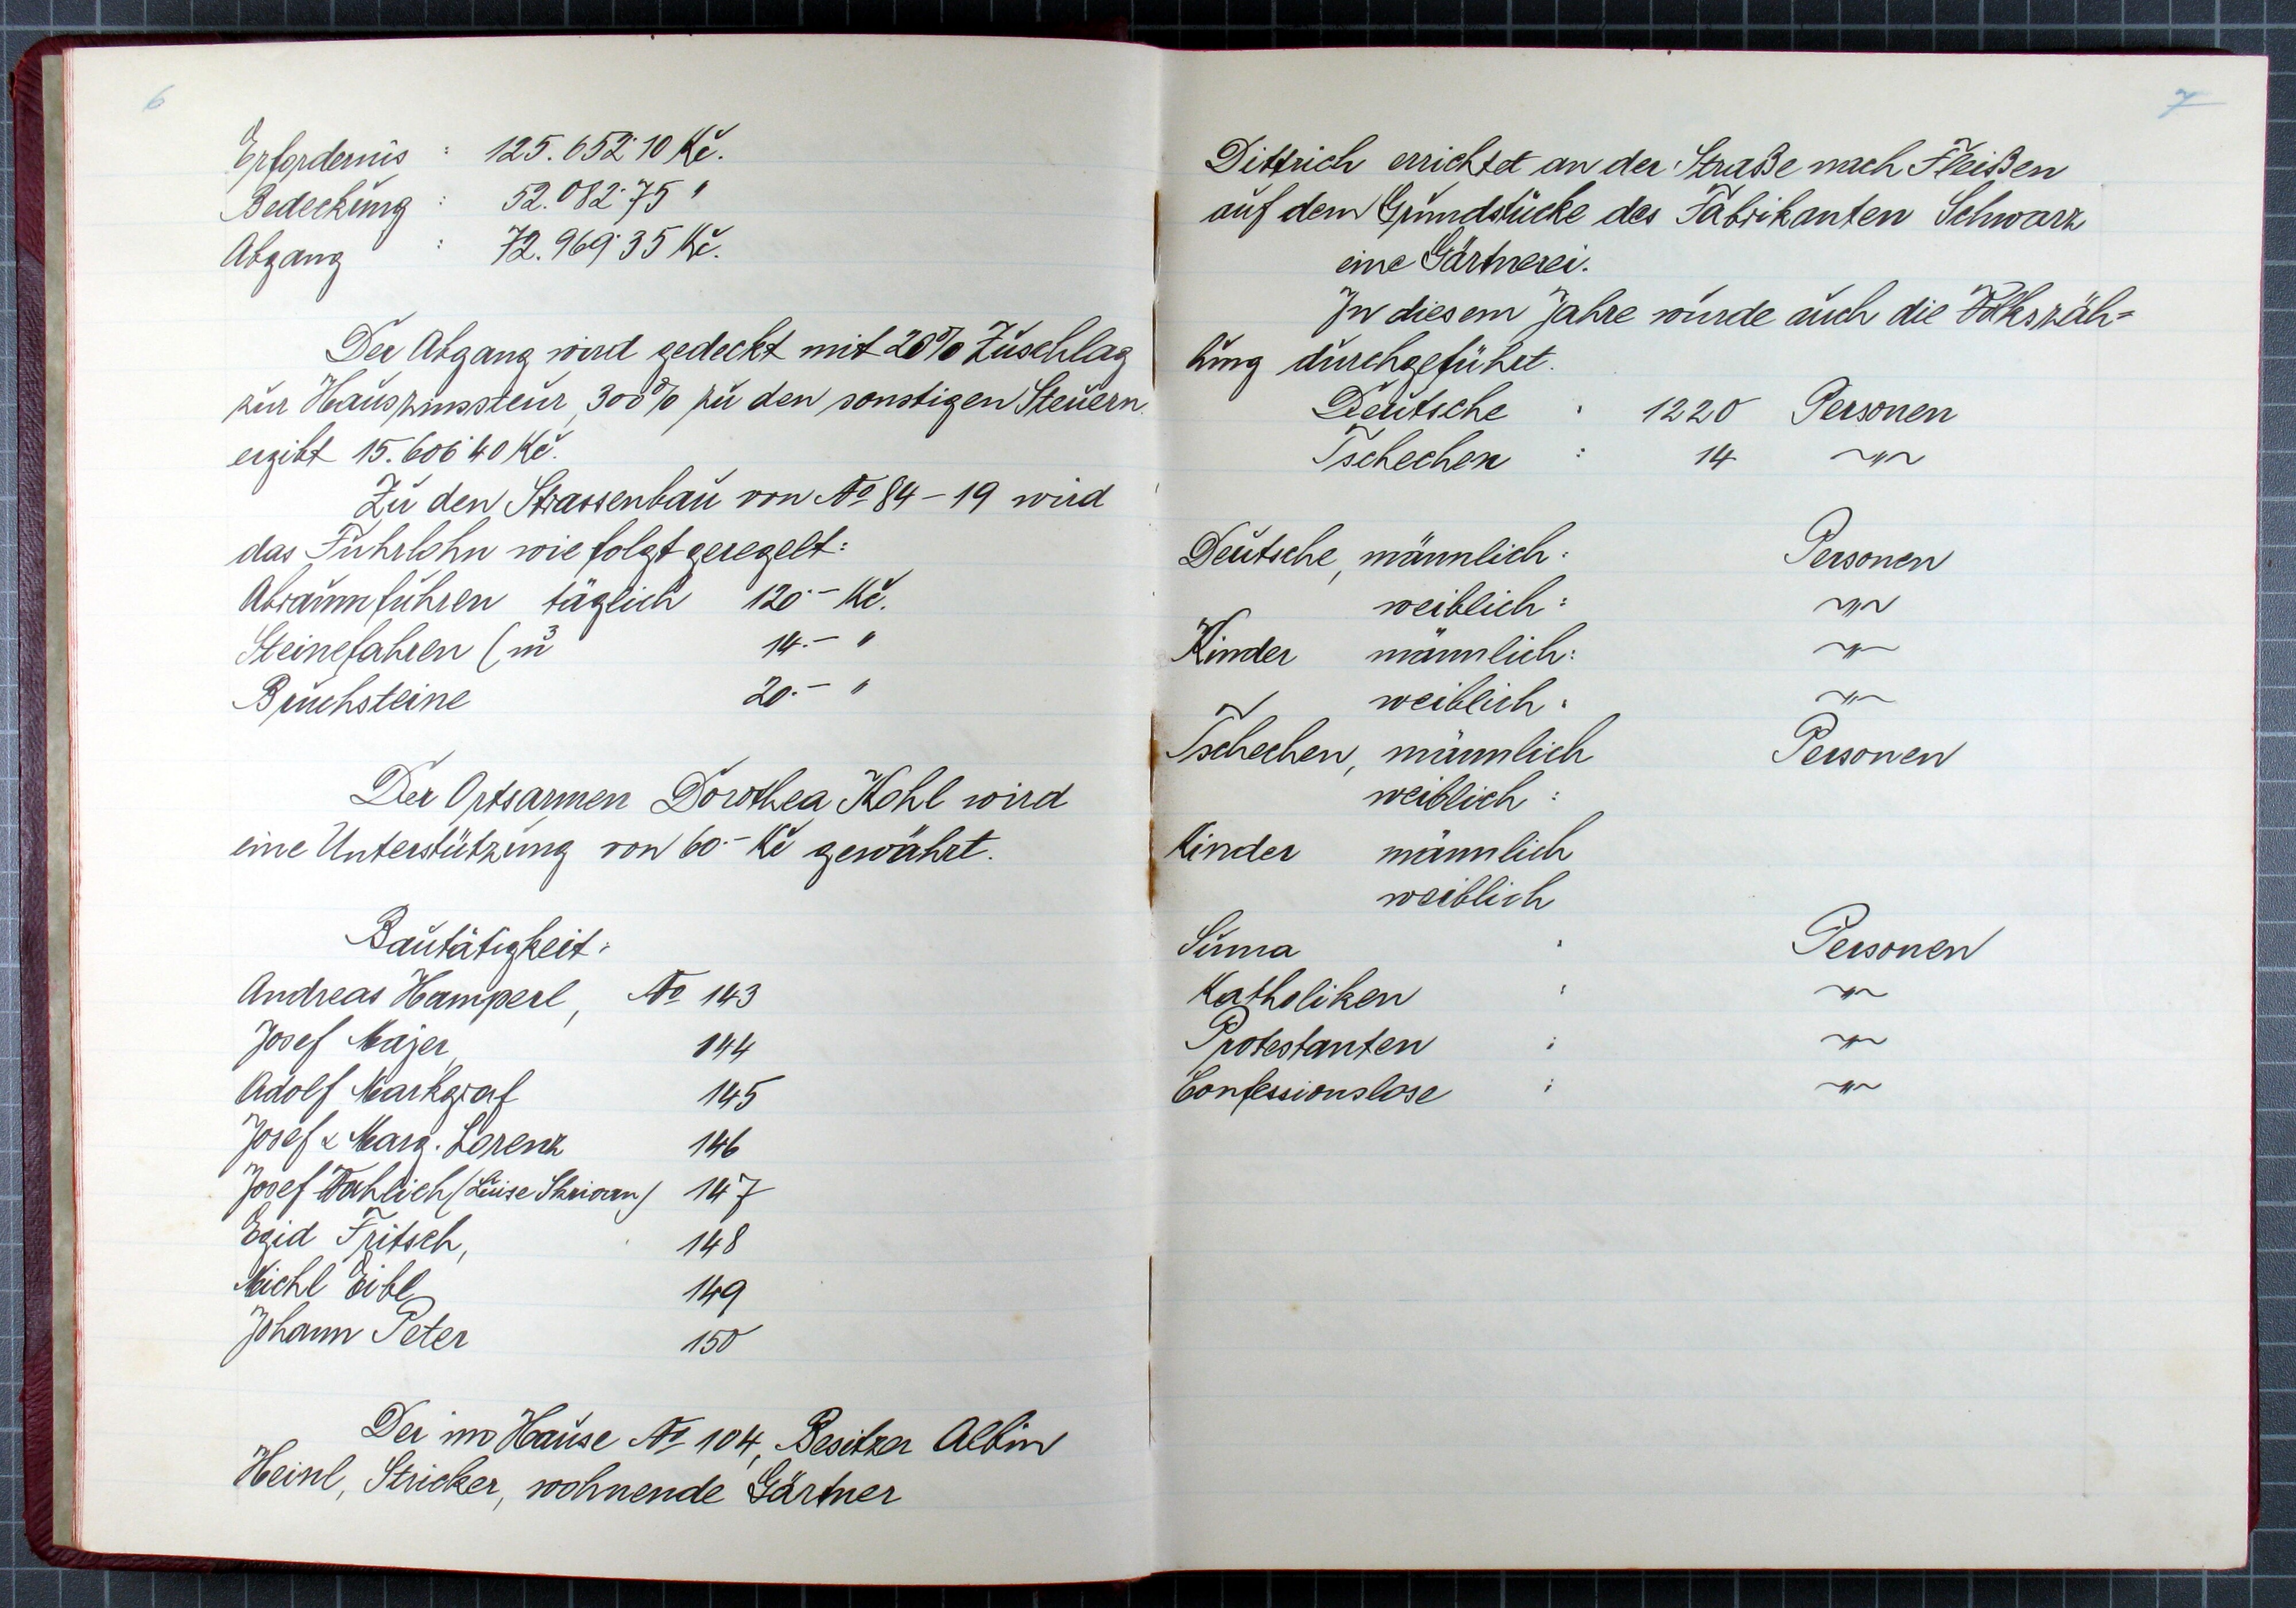 6
Erfordernis : 125.652·10 Kč.
Bedeckung : 52.082·75 "
Abgang : 72.969·35 Kč.
Der Abgang wird gedeckt mit 20% Zuschlag
zur Hauszinssteur, 300% zu den sonstigen Steuern
ergibt 15.606·40 Kč.
Zu den Strassenbau von No 84 – 19 wird
das Fuhrlohn wie folgt geregelt:
Abraumfuhren täglich 120·– Kč.
Steinefahren (m³ 14.– "
Bruchsteine 20.– "
Der Ortsarmen Dorothea Kohl wird
eine Unterstützung von 60.– Kč gewährt.
Bautätigkeit:
Andreas Hamperl, No 143
Josef Majer, 144
Adolf Markgraf 145
Josef & Marg. Lorenz 146
Josef (Luise) 147
Egid Fritsch, 148
Michl Eibl 149
Johann Peter 150
Der im Hause No 104, Besitzer Albin
Heinl, Stricker, wohnende Gärtner
7
Dittrich errichtet an der Straße nach Fleißen
auf dem Grundstücke des Fabrikanten Schwarz
eine Gärtnerei.
In diesem Jahre wurde auch die Volkszäh=
lung durchgeführt.
Deutsche : 1220 Personen
Tschechen : 14 ~"~
Deutsche, männlich : Personen
weiblich : ~"~
Kinder männlich : ~"~
weiblich : ~"~
Tschechen, männlich Personen
weiblich :
Kinder männlich
weiblich
Summa : Personen
Katholiken : ~"~
Protestanten : ~"~
Confessionslose : ~"~